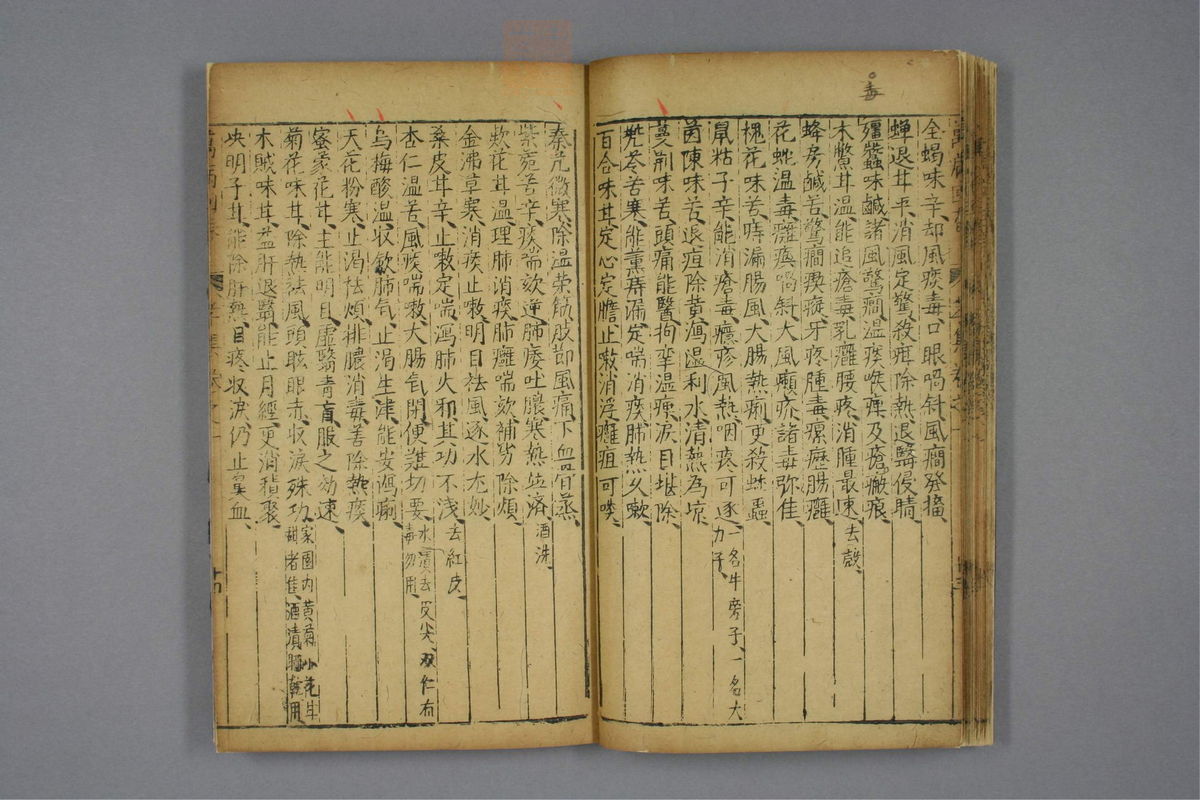 毒
全蝎味辛却風痰毒口眼喎斜風癇發搐
蟬退甘平消風定驚殺疳除熱退翳侵睛
殭蠶味鹹諸風驚癇溫痰喉痺及瘡癜痕
木鱉甘溫能追瘡毒乳癰腰疼消腫最速去殼
蜂房鹹苦驚癇瘈瘲牙疼腫毒瘰癧腸癰
花蛇溫毒癱瘓喎斜大風癩疥諸毒弥佳
槐花味苦痔漏腸風大腸熱痢更殺蛔蟲
鼠粘子辛能消瘡毒癮疹風熱咽疼可逐一名牛旁子一名大力子
茵陳味苦退疸除黃瀉溫利水清熱為凉
蔓荆味苦頭痛能醫拘攣溫瘰淚目堪除
兠苓苦寒能薰痔漏定喘消痰肺熱久嗽
百合味甘定心定膽止嗽消浮癰疽可啖
秦艽微寒除溫荣筋肢節風痛下血骨蒸
紫菀苦辛痰喘欬逆肺痿吐膿寒熱並济酒洗
欵花甘溫理肺消痰肺癰喘欬補劳除煩
金沸草寒消痰止嗽明目祛風逐水尤妙
桑皮甘辛止嗽定喘瀉肺火邪其功不浅去紅皮
杏仁溫苦風痰喘嗽大腸气閉便難切要水漬去皮尖双仁有毒勿用
乌梅酸溫收歛肺气止渴生津能安瀉痢
天花粉寒止渴祛煩排膿消毒善除熱痰
蜜蒙花甘主能明目虛翳青盲服之効速
菊花味甘除熱祛風頭眩眼赤收淚殊功家園内黄菊小花味甜者佳酒漬晒乾用
木賊味甘益肝退翳能止月經更消積聚
决明子甘能除肝熱目疼收淚仍止鼻血